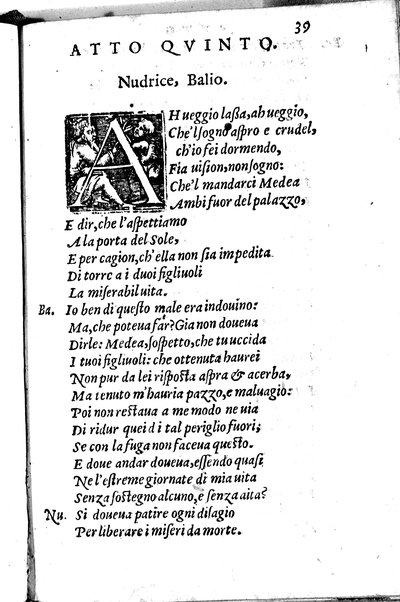 39
ATTO QVINTO.
Nudrice, Balio.
AH ueggio laſſa, ah ueggio,
Che'l ſogno aſpro e crudel,
ch'io fei dormendo,
Fia uiſion, non ſogno:
Che'l mandarci Medea
Ambi fuor del palazzo,
E dir, che l'aſpettiamo
A la porta del Sole,
E per cagion, ch'ella non ſia impedita
Di torre a i duoi figliuoli
La miſerabil uita.
Ba. Io ben di queſto male era indouino:
Ma, che poteua far? Gia non doueua
Dirle: Medea, ſoſpetto, che tu uccida
I tuoi figliuoli: che ottenuta haurei
Non pur da lei riſpoſta aſpra & acerba,
Ma tenuto m'hauria pazzo, e maluagio:
Poi non reſtaua a me modo ne uia
Di ridur quei di tal periglio fuori;
Se con la fuga non faceua queſto.
E doue andar doueua, eſſendo quaſi
Ne l'eſtreme giornate di mia uita
Senza ſoſtegno alcuno, e ſenza aita?
Nu. Si doueua patire ogni diſagio
Per liberare i miſeri da morte.